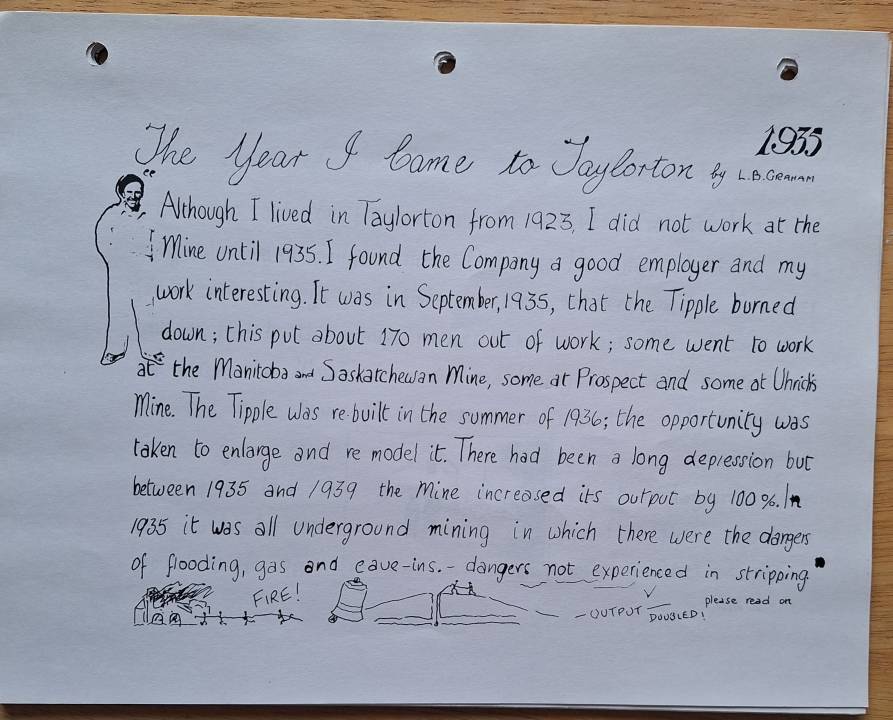 1935
The Year I Came to Taylorton by L.B. GRAHAM
"Although I lived in Taylorton from 1923, I did not work at the
Mine until 1935. I found the Company a good employer and my
work interesting. It was in September, 1935, that the Tipple burned
down; this put about 170 men out of work; some went to work
at the Manitoba and Saskatchewan Mine, some at Prospect and some at Uhrich's
Mine. The Tipple was re-built in the summer of 1936; the opportunity was
taken to enlarge and re model it. There had been a long depression but
between 1935 and 1939 the Mine increased its output by 100%. In
1935 it was all underground mining in which there were the dangers
of flooding, gas and cave-ins. - dangers not experienced in stripping.
FIRE!
- OUTPUT DOUBLED!
please read on